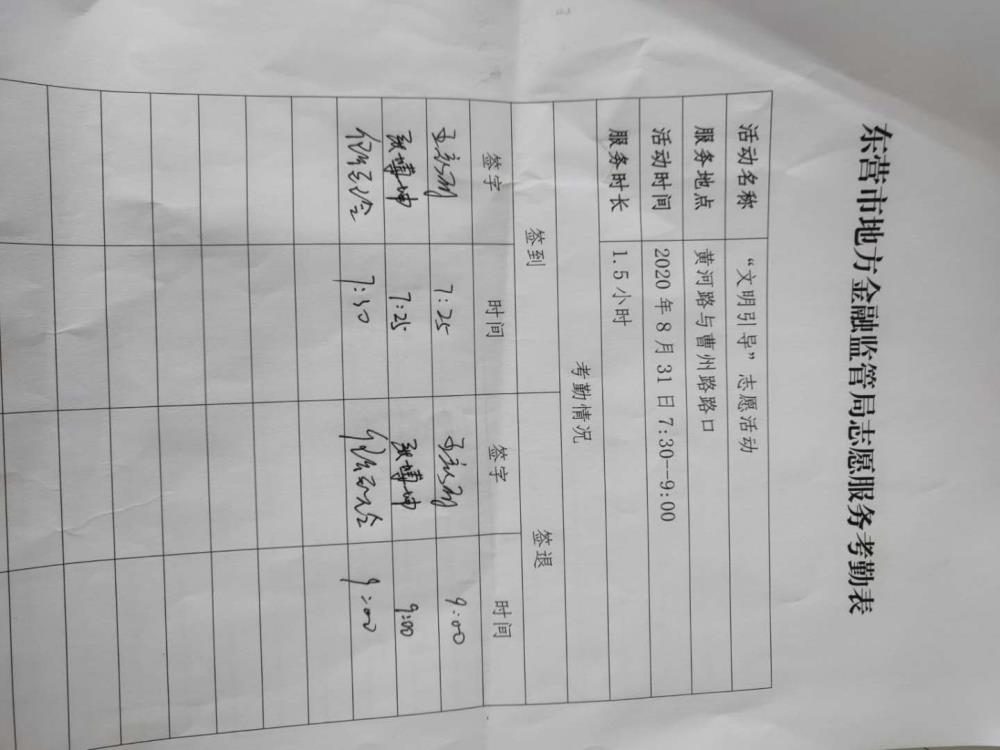 东营市地方金融监管局志愿服务考勤表
活动名称 “文明引导”志愿活动
服务地点 黄河路与曹州路路口
活动时间 2020 年 8 月 31 日 7:30--9:00
服务时长 1.5 小时
考勤情况
签到 签退
签字 时间 签字 时间
7:25 9:00
张博坤 7:25 张博坤 9:00
7:30 9:00